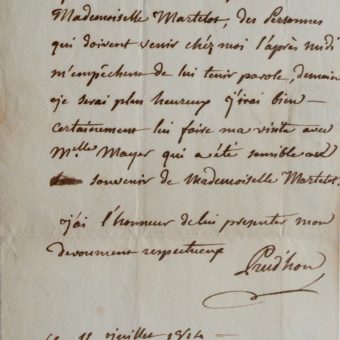 Mademoiselle Martelot, des Personnes
qui doivent venir chéz moi l'après midi
m'empêchent de lui tenir parole, demain
je serai plus heureux j'irai bien
certainement lui faire ma visite avec
Melle Mayer qui a été sensible au
souvenir de Mademoiselle Martelot.
j'ai l'honneur de lui presenter mon
devoument respectueux
Prud'hon
11 juillet 1814